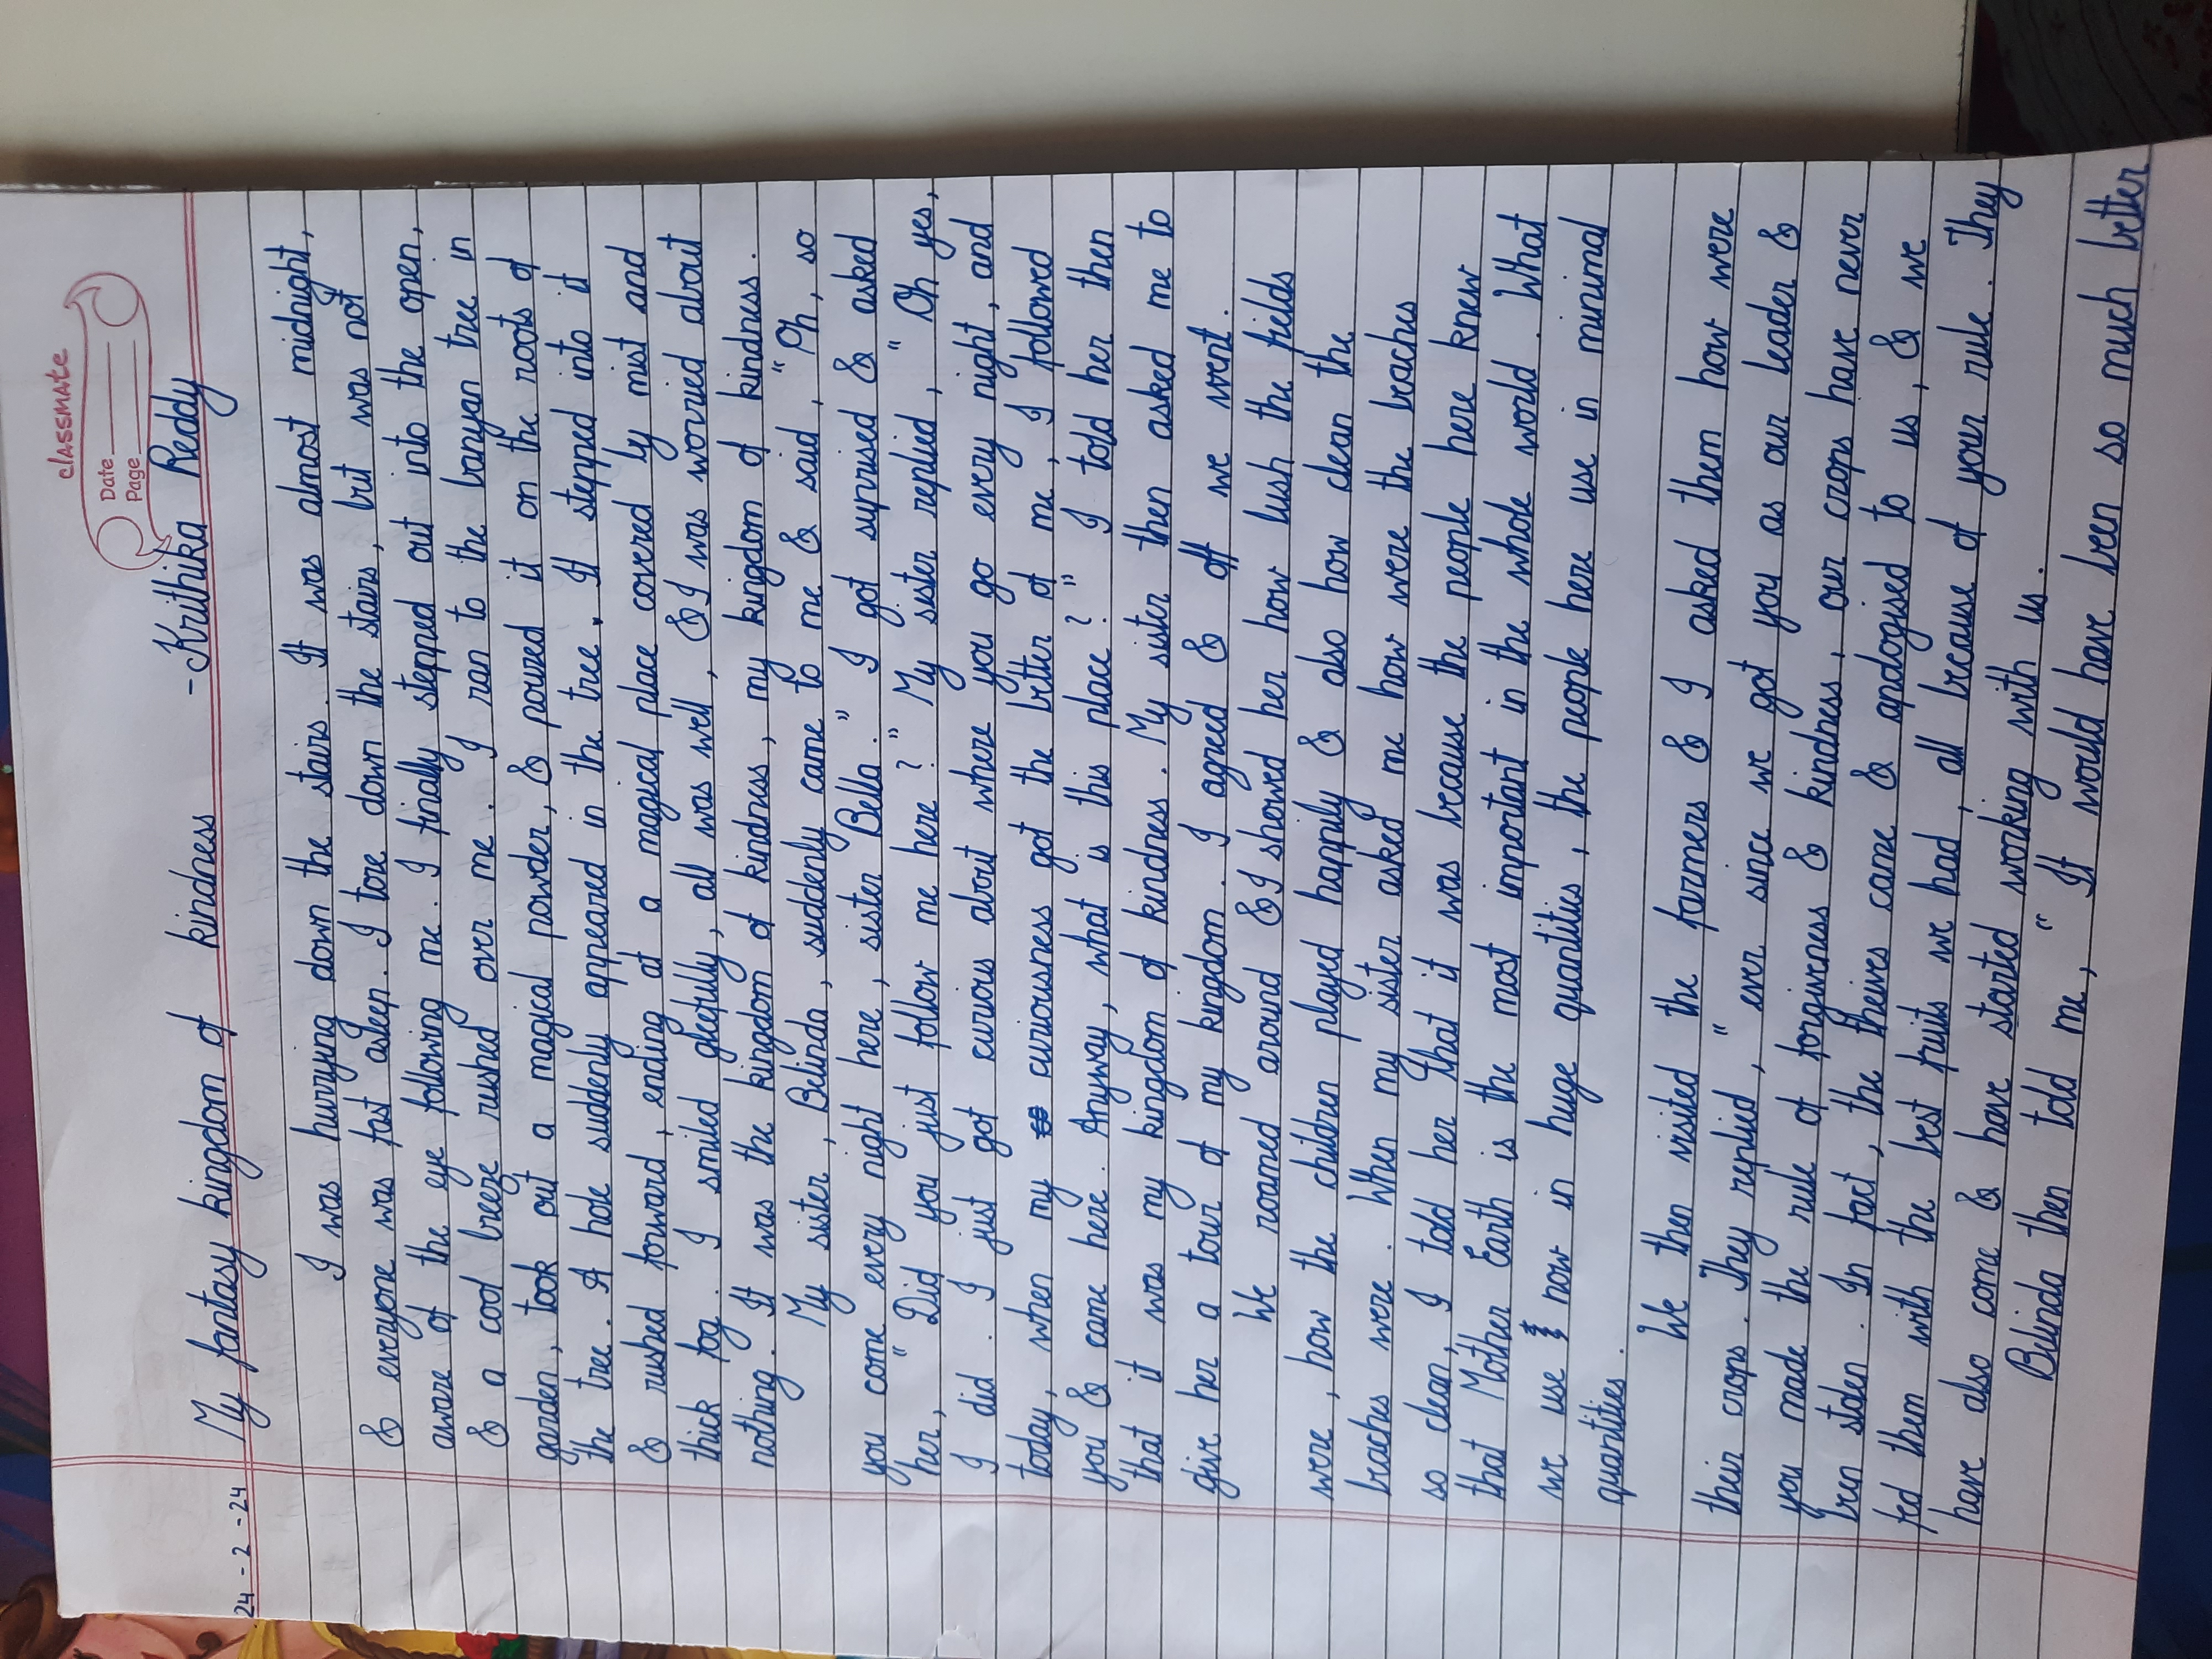 classmate
Date
Page
My fantasy kingdom of kindness -Krithika Reddy
24-2-24
I was hurrying down the stairs. It was almost midnight,
& everyone was fast asleep. I tore down the stairs, but was not
aware of the eye following me. I finally stepped out into the open,
& a cool breeze rushed over me. I ran to the banyan tree in
garden, took out a magical powder, & poured it on the roots of
the tree. A hole suddenly appeared in the tree. It stepped into it
& rushed forward, ending at a magical place covered by mist and
thick fog. I smiled gleefully, all was well, & I was worried about
nothing. It was the kingdom of kindness, my kingdom of kindness.
My sister, Belinda, suddenly came to me & said, "Oh, so
you come every night here, sister Bella." I got suprised & asked
her, "Did you just follow me here?" My sister replied, "Oh yes,
I did. I just got curious about where you go every night, and
today, when my curiousness got the better of me, I followed
you & came here. Anyway, what is this place?" I told her then
that it was my kingdom of kindness. My sister then asked me to
give her a tour of my kingdom. I agreed & off we went.
We roamed around & I showed her how lush the fields
were, how the children played happily & also how clean the
beaches were. When my sister asked me how were the beaches
so clean, I told her that it was because the people here knew
that Mother Earth is the most important in the whole world. What
we use now in huge quantities, the people here use in minimal
quantities.
We then visited the farmers & I asked them how were
their crops. They replied, "ever since we got you as our leader &
you made the rule of forgiveness & kindness, our crops have never
been stolen. In fact, the theives came & apologised to us, & we
fed them with the best fruits we had, all because of your rule. They
have also come & have started working with us.
Belinda then told me, "It would have been so much better